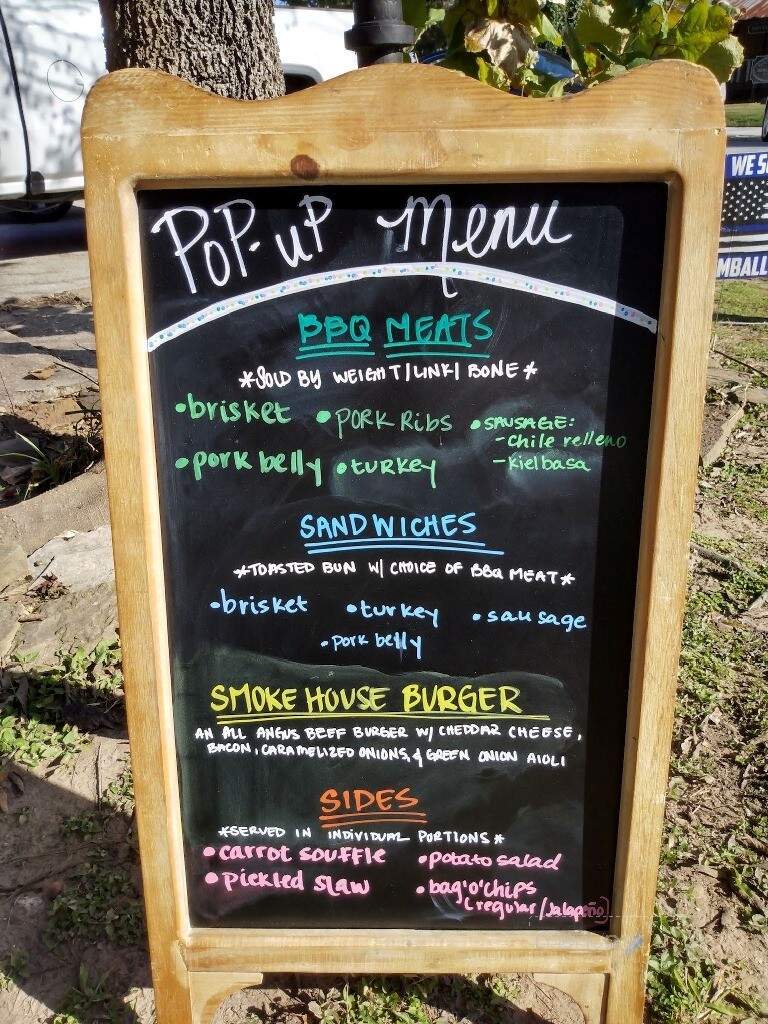 POP-UP Menu
BBQ MEATS
*SOLD BY WEIGHT/LINK/BONE*
•brisket •PORK RIBS •SAUSAGE:
-chile relleno
•pork belly •turkey -kielbasa
SANDWICHES
*TOASTED BUN W/ CHOICE OF BBQ MEAT*
•brisket •turkey •sausage
•pork belly
SMOKE HOUSE BURGER
AN ALL ANGUS BEEF BURGER W/ CHEDDAR CHEESE,
BACON, CARAMELIZED ONIONS, & GREEN ONION AIOLI
SIDES
*SERVED IN INDIVIDUAL PORTIONS*
•carrot souffle •potato salad
•pickled slaw •bag'o'chips
(regular/Jalapeño)
WE S
MBALL